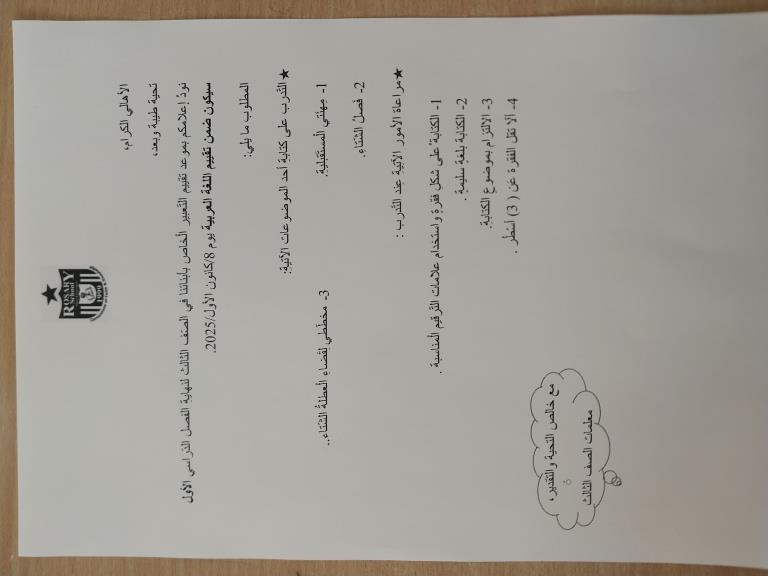 ROSARY
School
1990
الأهالي الكرام،
تحية طيبة وبعد،
نودّ إعلامكم بموعد تقييم التعبير الخاص بأبنائنا في الصف الثالث لنهاية الفصل الدّراسي الأول
سيكون ضمن تقييم اللغة العربية يوم 8/كانون الأول/2025.
المطلوب ما يلي:
★التّدرب على كتابة أحد الموضوعات الآتية:
1- مِهنتي المستقبلية.
3- مخطّطي لِقضاءِ العطلة الشتاء..
2- فصلُ الشّتاءِ.
★مراعاة الأمور الآتية عند التّدرب :
1- الكتابة على شكل فقرة واستخدام علامات التّرقيم المناسبة .
2- الكتابة بلغة سليمة .
3- الالتزام بموضوع الكتابة.
4- ألا تقل الفقرة عن ( 3) أسطر .
مع خالص التحية والتقدير ،
معلمات الصف الثالث